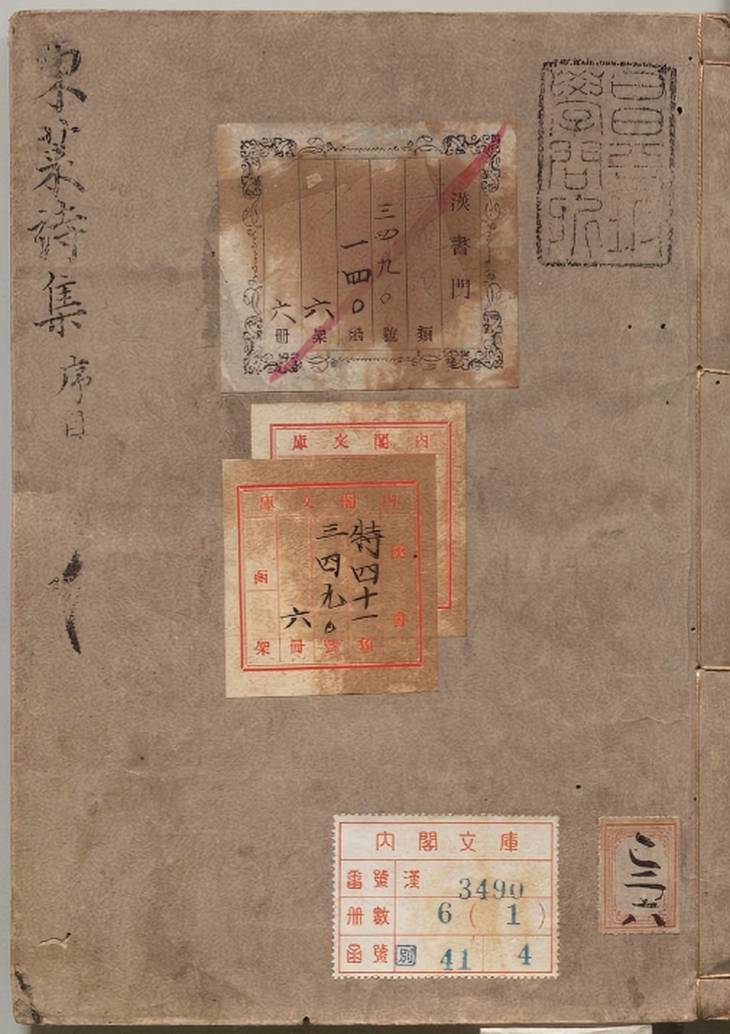 東萊詩集 序目
昌平坂
學問所
漢書門
類
三四九〇號
一四〇函
六架
六冊
內閣文庫
內閣文庫
漢書
特四十一類
三四九〇號
六冊
函
架
內閣文庫
番號 漢 3490
冊數 6 (1)
函號 別 41 4